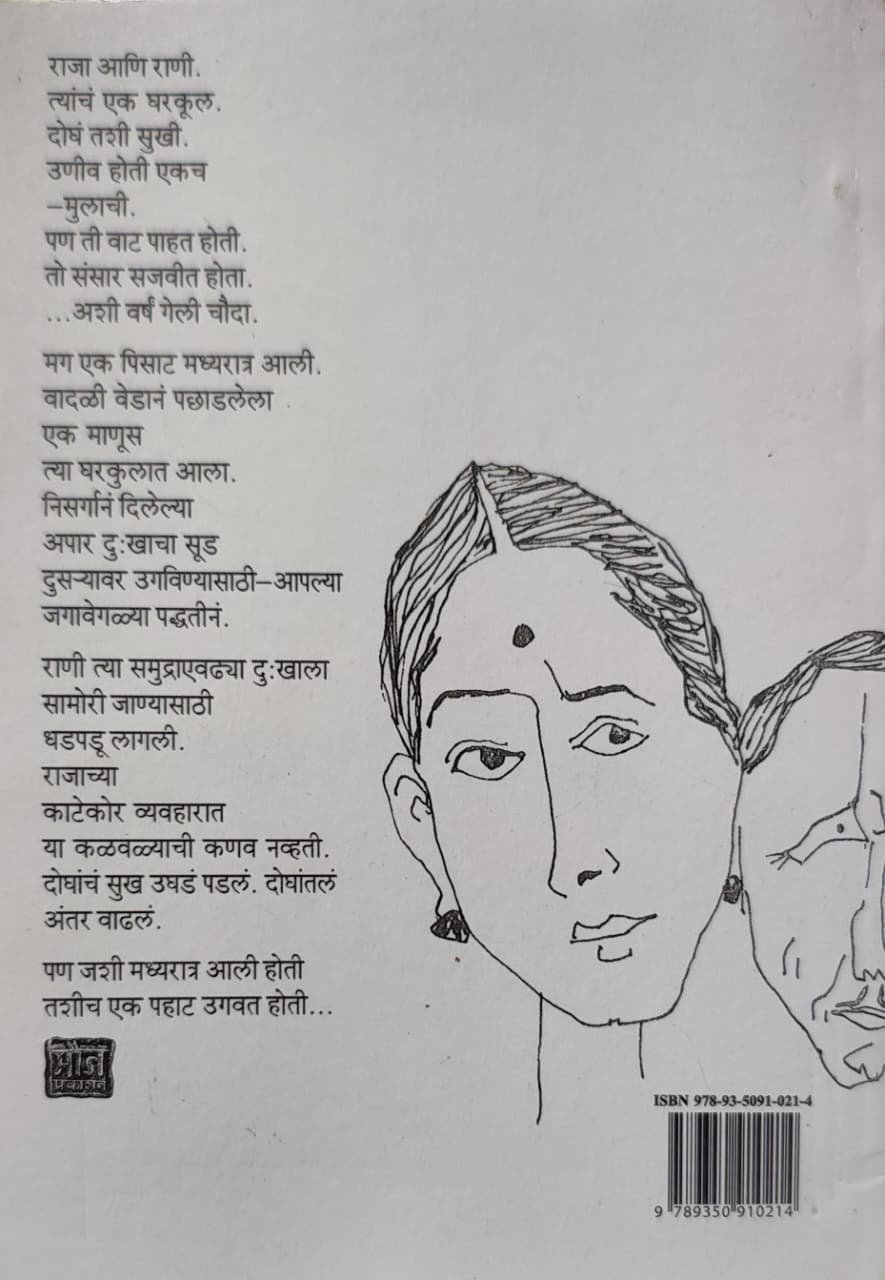 राजा आणि राणी.
त्यांचं एक घरकूल.
दोघं तशी सुखी.
उणीव होती एकच
–मुलाची.
पण ती वाट पाहत होती.
तो संसार सजवीत होता.
...अशी वर्षं गेली चौदा.
मग एक पिसाट मध्यरात्र आली.
वादळी वेडानं पछाडलेला
एक माणूस
त्या घरकुलात आला.
निसर्गानं दिलेल्या
अपार दुःखाचा सूड
दुसऱ्यावर उगविण्यासाठी–आपल्या
जगावेगळ्या पद्धतीनं.
राणी त्या समुद्राएवढ्या दुःखाला
सामोरी जाण्यासाठी
धडपडू लागली.
राजाच्या
काटेकोर व्यवहारात
या कळवळ्याची कणव नव्हती.
दोघांचं सुख उघडं पडलं. दोघांतलं
अंतर वाढलं.
पण जशी मध्यरात्र आली होती
तशीच एक पहाट उगवत होती...
मौज
प्रकाशन
ISBN 978-93-5091-021-4
9 789350 910214